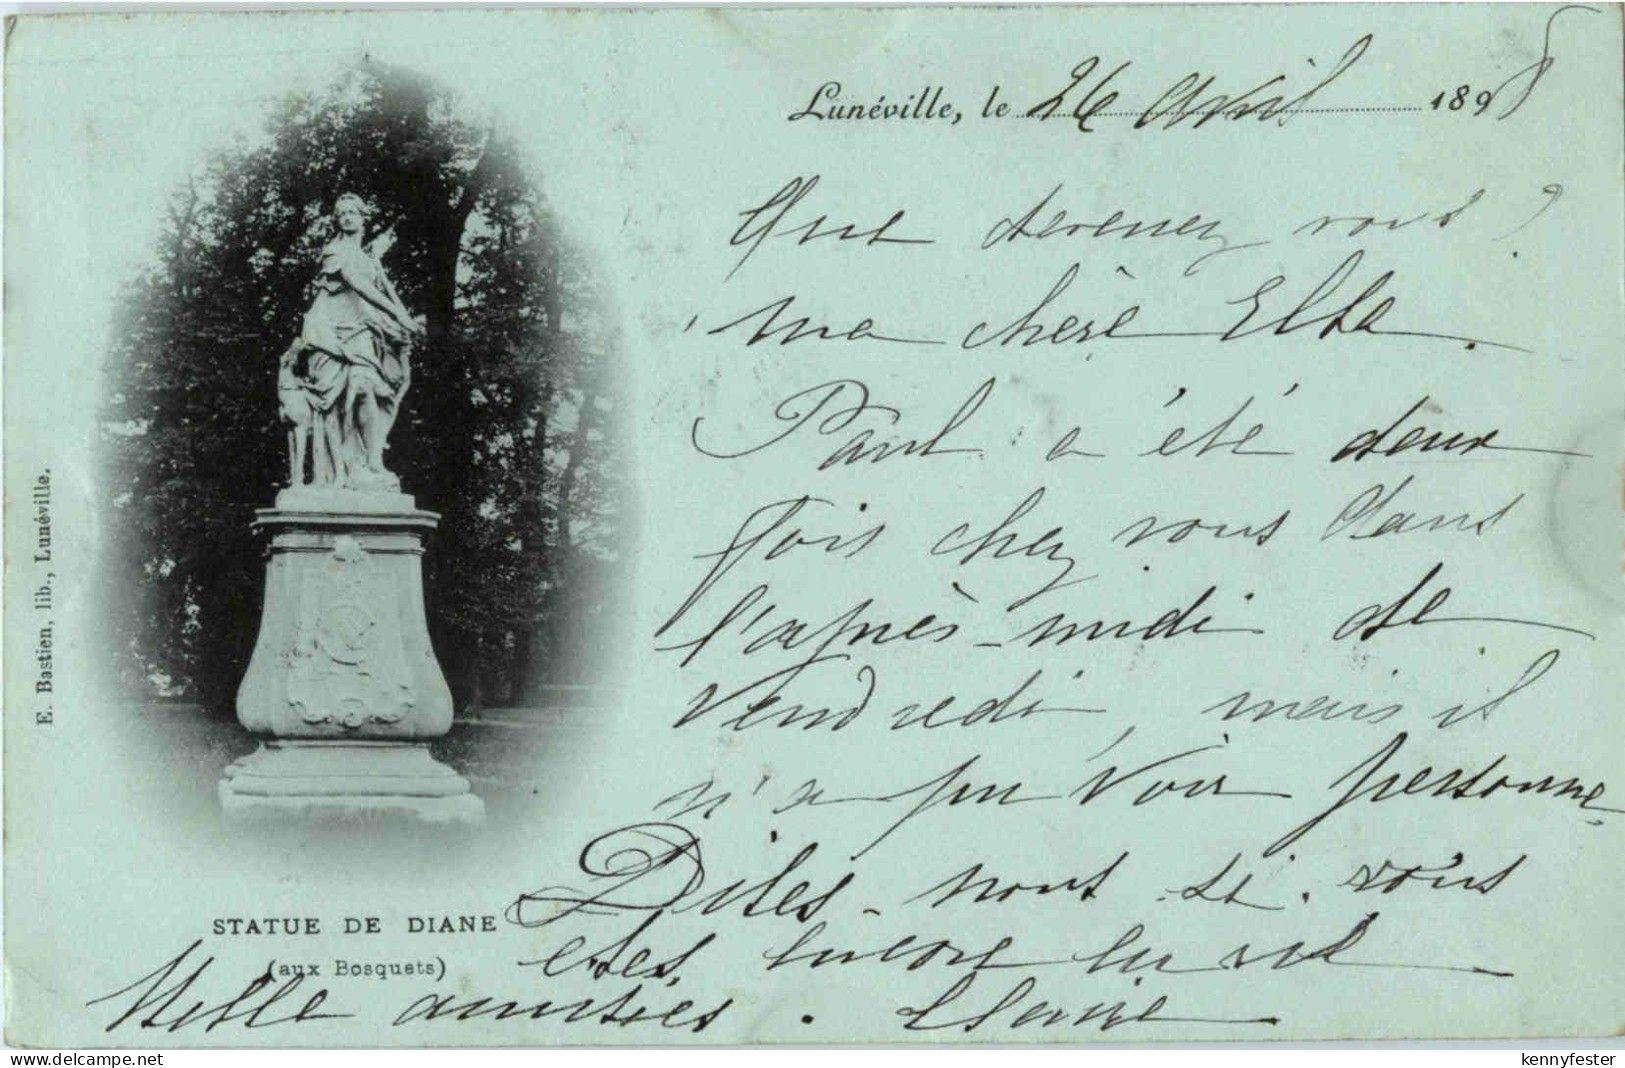 Lunéville, le 26 Avril 1898
Que devenez vous ?
ma chère Elba.
Paul a été deux
fois chez vous dans
l'après-midi de
Vendredi, mais il
n'a pu voir personne,
Dites-nous si vous
êtes encore en vie
Mille amitiés. Claire
STATUE DE DIANE
(aux Bosquets)
E. Bastien, lib., Lunéville.
www.delcampe.net
kennyfester